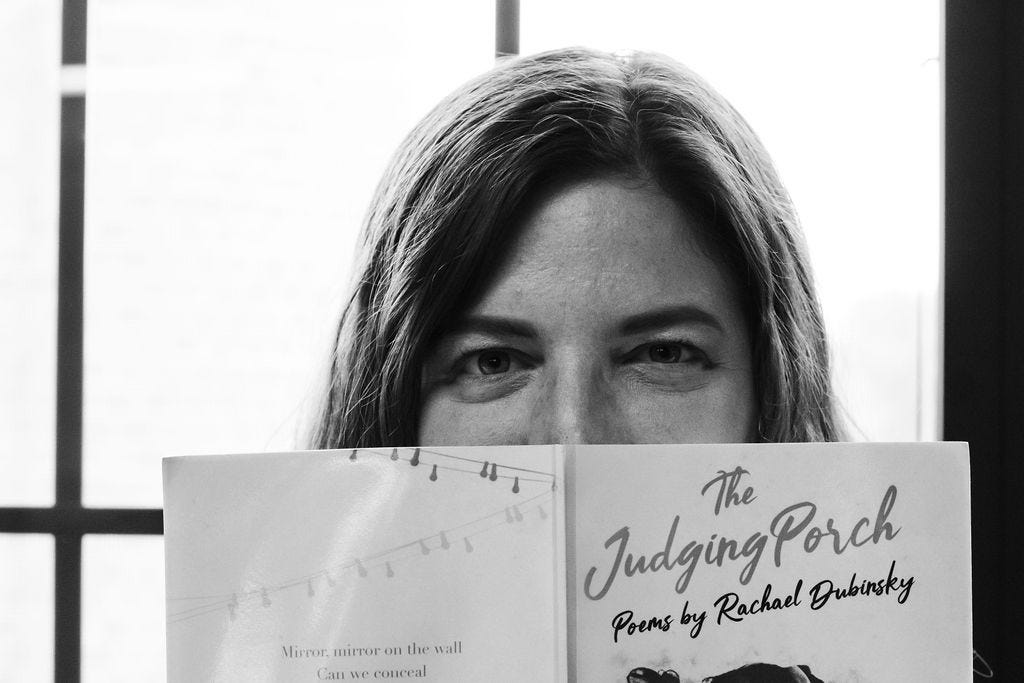 Mirror, mirror on the wall
Can we conceal
The
Judging Porch
Poems by Rachael Dubinsky